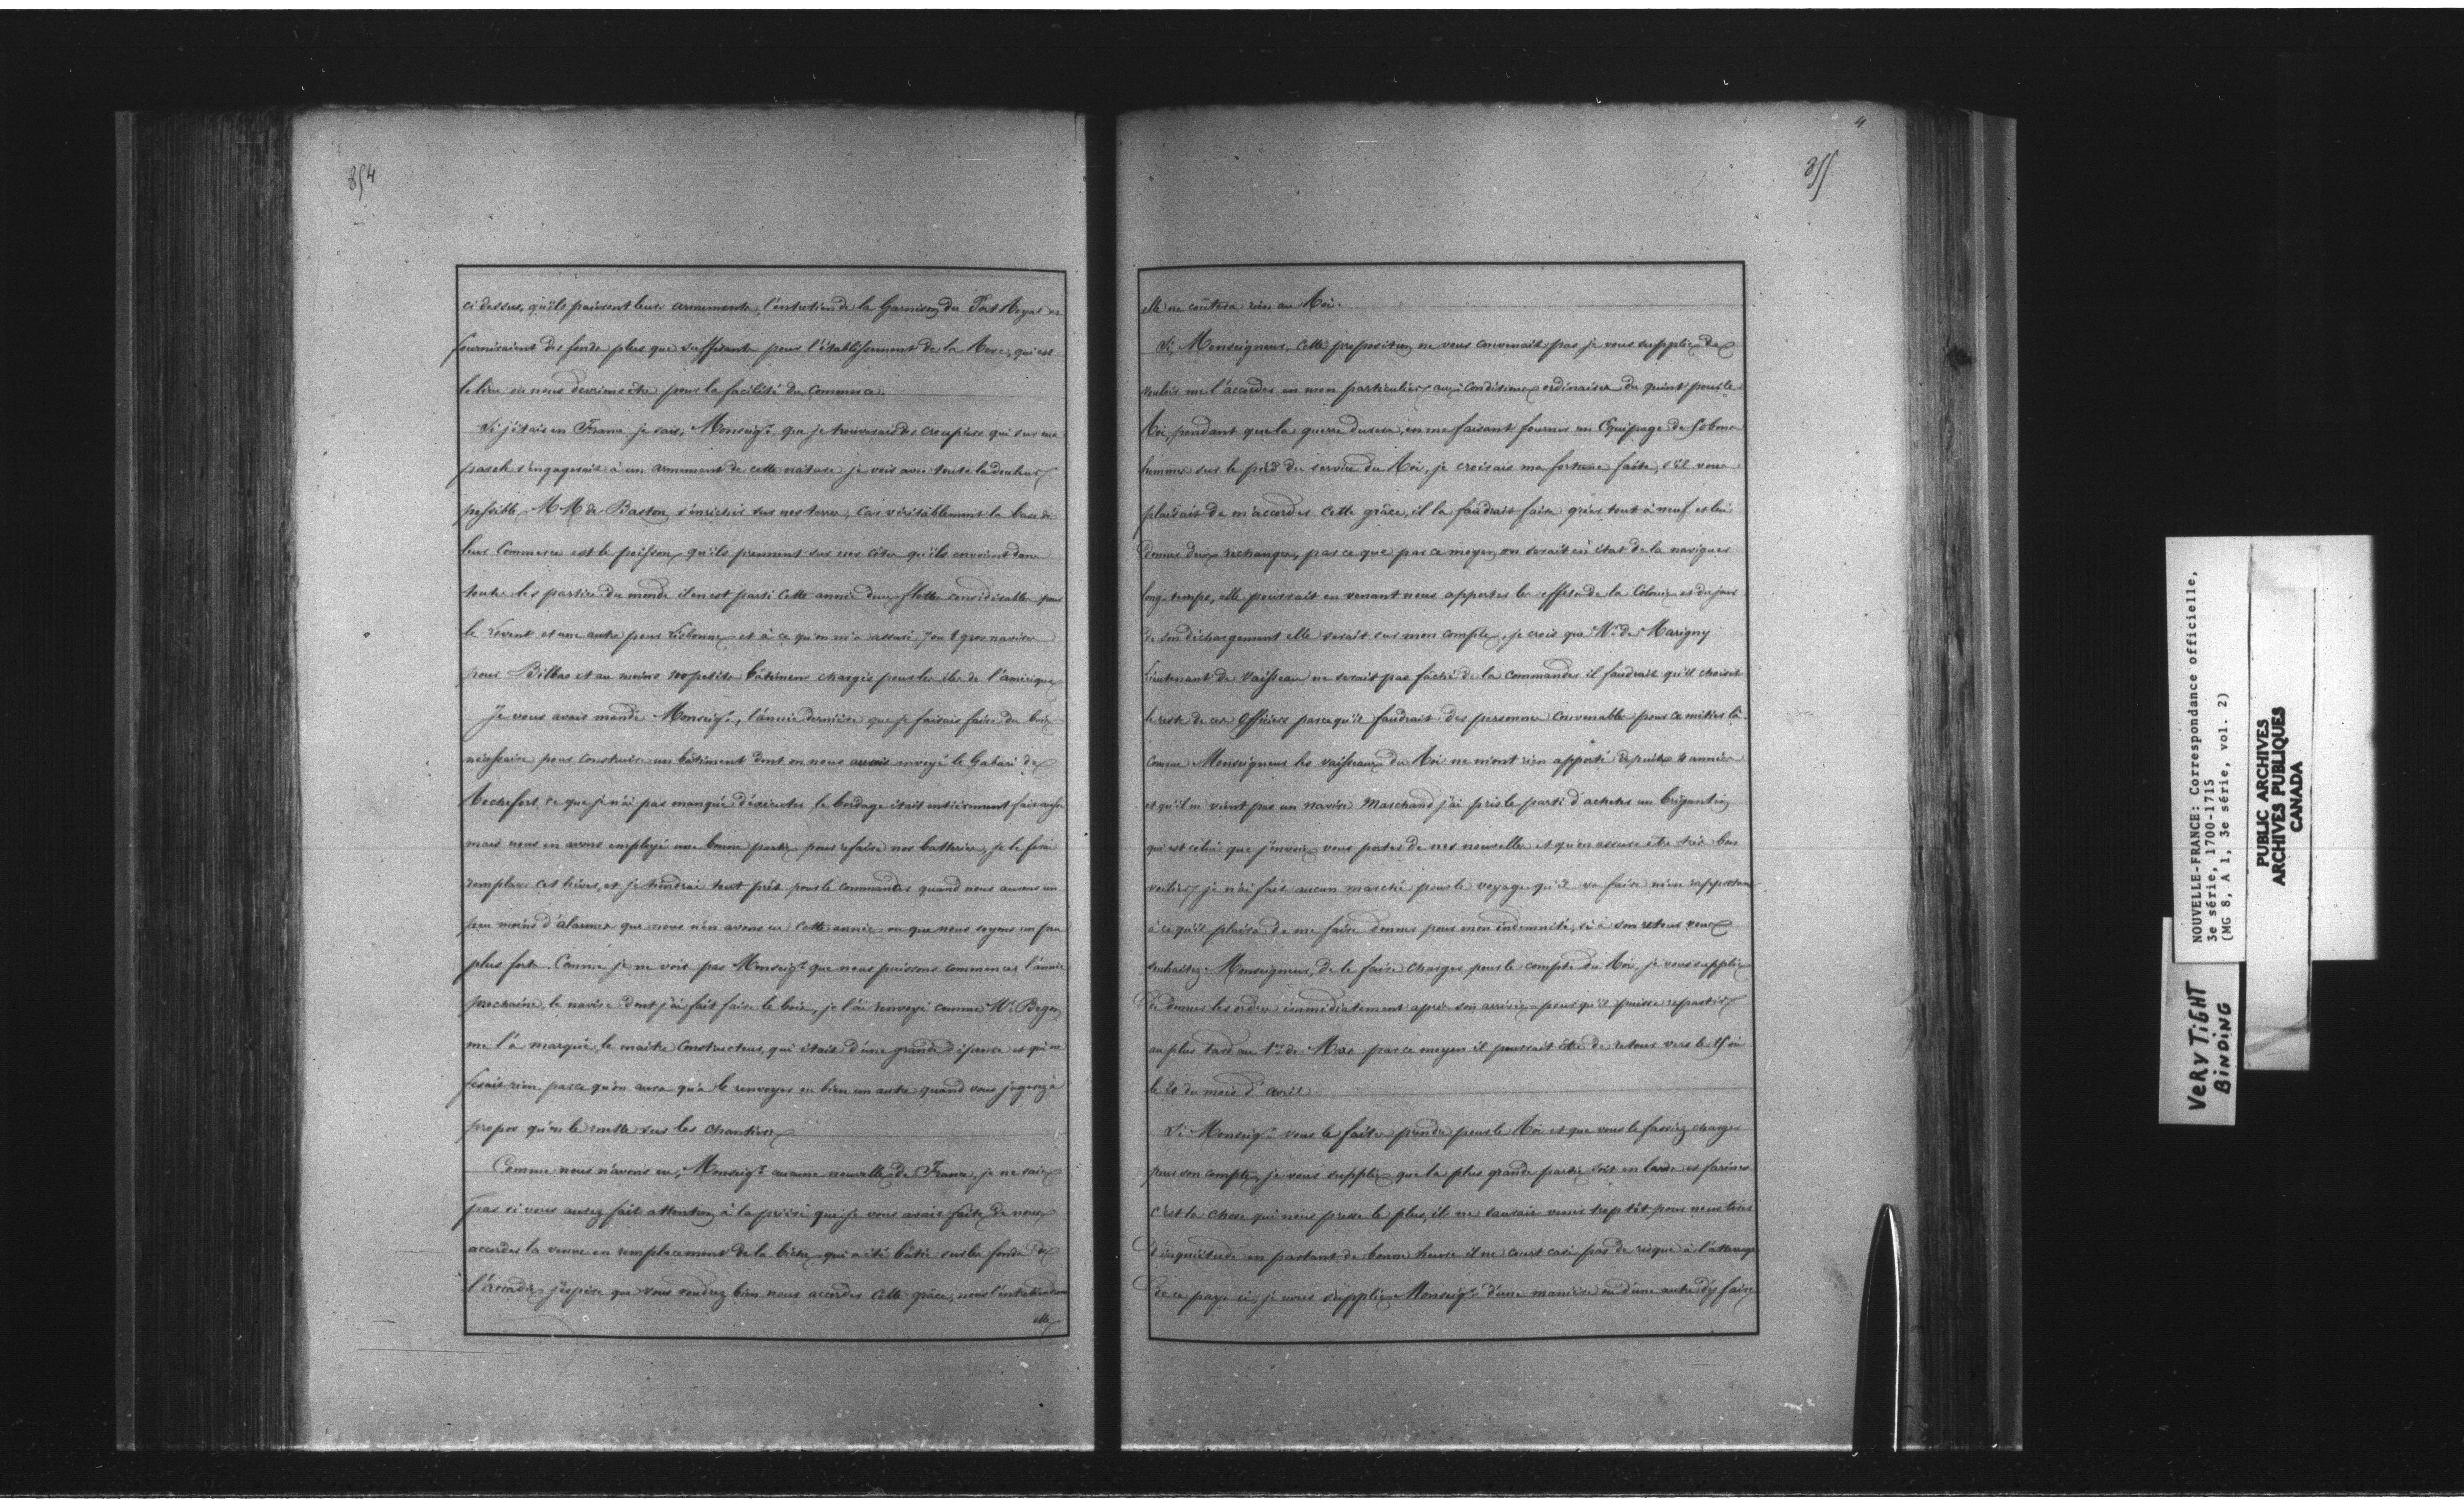 854
ci dessus, qu'ils paieront leurs armements, l'entretien de la Garnison du Port Royal et
fourniraient des fonds plus que suffisants pour l'établissement de la Heve, qui est
le lieu où nous devrions être pour la facilité du Commerce.
Si j'étais en France je sais, Monseigr. que je trouverais des croupiers qui sur ma
parole s'engagerait à un armement de cette nature je vois avec toute la douleur
possible MM de Baston s'enrichir sur nos terres, car véritablement la base de
leur Commerce est le poisson qu'ils prennent sur nos côtes qu'ils envoient dans
toutes les parties du monde il en est parti cette année deux flottes considérables pour
le Levent et une autre pour Lisbonne et à ce qu'on m'a assuré 7 ou 8 gros navires
pour Bilbao et au moins 100 petits bâtimens chargés pour les îles de l'amérique
Je vous avais mandé Monseigr, l'année dernière que je faisais faire du bois
nécessaire pour construire un bâtiment dont on nous avait envoyé le Gabari de
Rochefort, ce que je n'ai pas manqué d'éxécuter le bordage était entièrement fait aussi
mais nous en avons employé une bonne partie pour refaire nos batteries, je le ferai
remplacer cet hiver, et je tiendrai tout prêt pour le commander quand nous aurons un
peu moins d'alarmes que nous n'en avons eu cette année ou que nous soyons un peu
plus forts. Comme je ne vois pas Monseigr. que nous puissions commencer l'année
prochaine, le navire dont j'ai fait faire le bois, je l'ai renvoyé comme Mr. Begon
me l'a marqué, le maitre Constructeur, qui était d'une grande dépense et qui ne
fesait rien parce qu'on aura qu'à le renvoyer ou bien un autre quand vous jugerez à
propos qu'on le mette sur les chantiers
Comme nous n'avons eu, Monseigr. aucune nouvelle de France, je ne sais
pas si vous aurez fait attention à la prière que je vous avais faite de nous
accorder la venus en remplacement de la biche qui a été bâtie sur les fonds de
l'accadie j'espère que vous voudrez bien nous accorder cette grâce, nous l'entretiendrons
elle
4
855
elle ne coûtera rien au Roi.
Si, Monseigneur, cette proposition ne vous convenait pas je vous supplie de
vouloir me l'accorder en mon particulier aux conditions ordinaires du quint pour le
Roi pendant que la guerre durera, en me faisant fournir un Equipage de
hommes sur le pied du service du Roi, je croirais ma fortune faite, s'il vous
plaisait de m'accorder cette grâce, il la faudrait faire gréer tout à neuf et lui
donner deux rechanges, parce que par ce moyen on serait en état de la naviguer
long-temps, elle pourrait en venant nous apporter les effets de la Colonie et du jour
de son déchargement elle serait sur mon compte, je crois que Mr. de Marigny
Lieutenant de Vaisseau ne serait pas fâché de la commander il faudrait qu'il choisit
le reste de ces officiers parce qu'il faudrait des personnes convenables pour ce métier là.
Comme Monseigneur les vaisseaux du Roi ne m'ont rien apporté depuis années
et qu'il ne vient pas un navire Marchand j'ai pris le parti d'acheter un brigantin
qui est celui que j'envoie vous porter de nos nouvelles et qu'on assure être très bon
voilier je n'ai fait aucun marché pour le voyage qu'il va faire m'en rapportant
à ce qu'il plaira de me faire donner pour mon indemnité, si à son retour vous
souhaitez Monseigneur, de le faire charger pour le compte du Roi, je vous supplie
de donner les ordres immédiatement après son arrivée pour qu'il puisse repartir
au plus tard au 1er. de Mars par ce moyen il pourrait être de retour vers le 15 ou
le 20 du mois d'avril
Si Monseigr. vous le faites prendre pour le Roi et que vous le fassiez charger
pour son compte, je vous supplie que la plus grande partie soit en lards et farines
c'est la chose qui nous presse le plus, il ne saurait venir trop tôt pour nous tirer
d'inquiétude en partant de bonne heure il ne court casi pas de risque à l'atterage
de ce pays ci, je vous supplie Monseigr. d'une manière ou d'une autre d'y faire
NOUVELLE-FRANCE: Correspondance officielle,
3e série, 1700-1715
(MG 8, A 1, 3e série, vol. 2)
PUBLIC ARCHIVES
ARCHIVES PUBLIQUES
CANADA
VERY TIGHT
BINDING